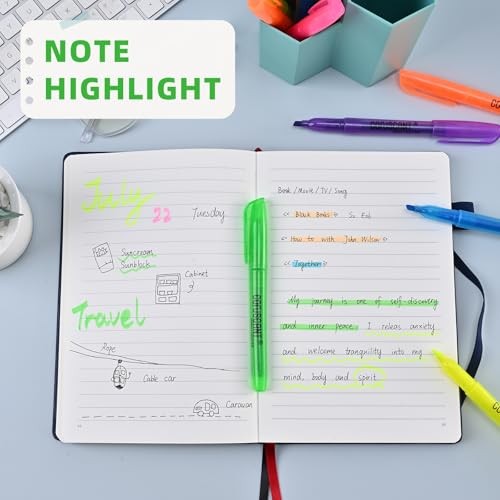 NOTE
HIGHLIGHT
July
22
Tuesday
Suncream
Sunblock
Cabinet
Travel
Rope
Cable car
Caravan
Book / Movie / TV / Song
<< Black Books >> So Eob
<< How to with John Wilson
<< Together >>
My journey is one of self-discovery
and inner peace. I releas anxiety
and welcome tranquility into my
mind, body and spirit.